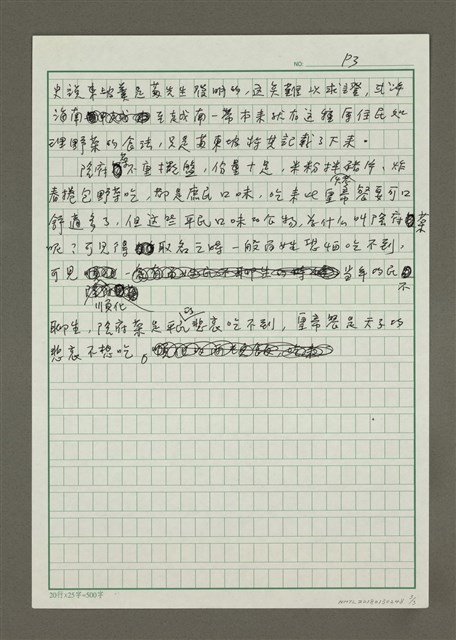 NO. P3
史說東坡羹是蘇先生發明的，這矣難以求證，或許
海南 至或南一帶本來就有這種原住民処
理野菜的食法，只是蘇東坡將其記載了下來。
陰府菜不重擺盤，份量十足，米粉拌豬件、炸
春捲包野菜吃，都是庶民口味，吃來比皇帝餐要可口
舒適多了，但這些平民口味的食物，為什么叫陰府菜
呢？可見得 取名之時一般百姓恐怕吃不到，
可見 當年的民不
聊生，陰府菜是平民的悲哀吃不到，皇帝餐是天子的
悲哀不想吃。
20行×25字=500字